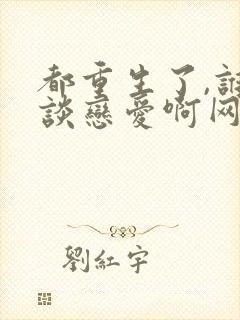 都重生了,誰
談戀愛啊网
劉紅宇